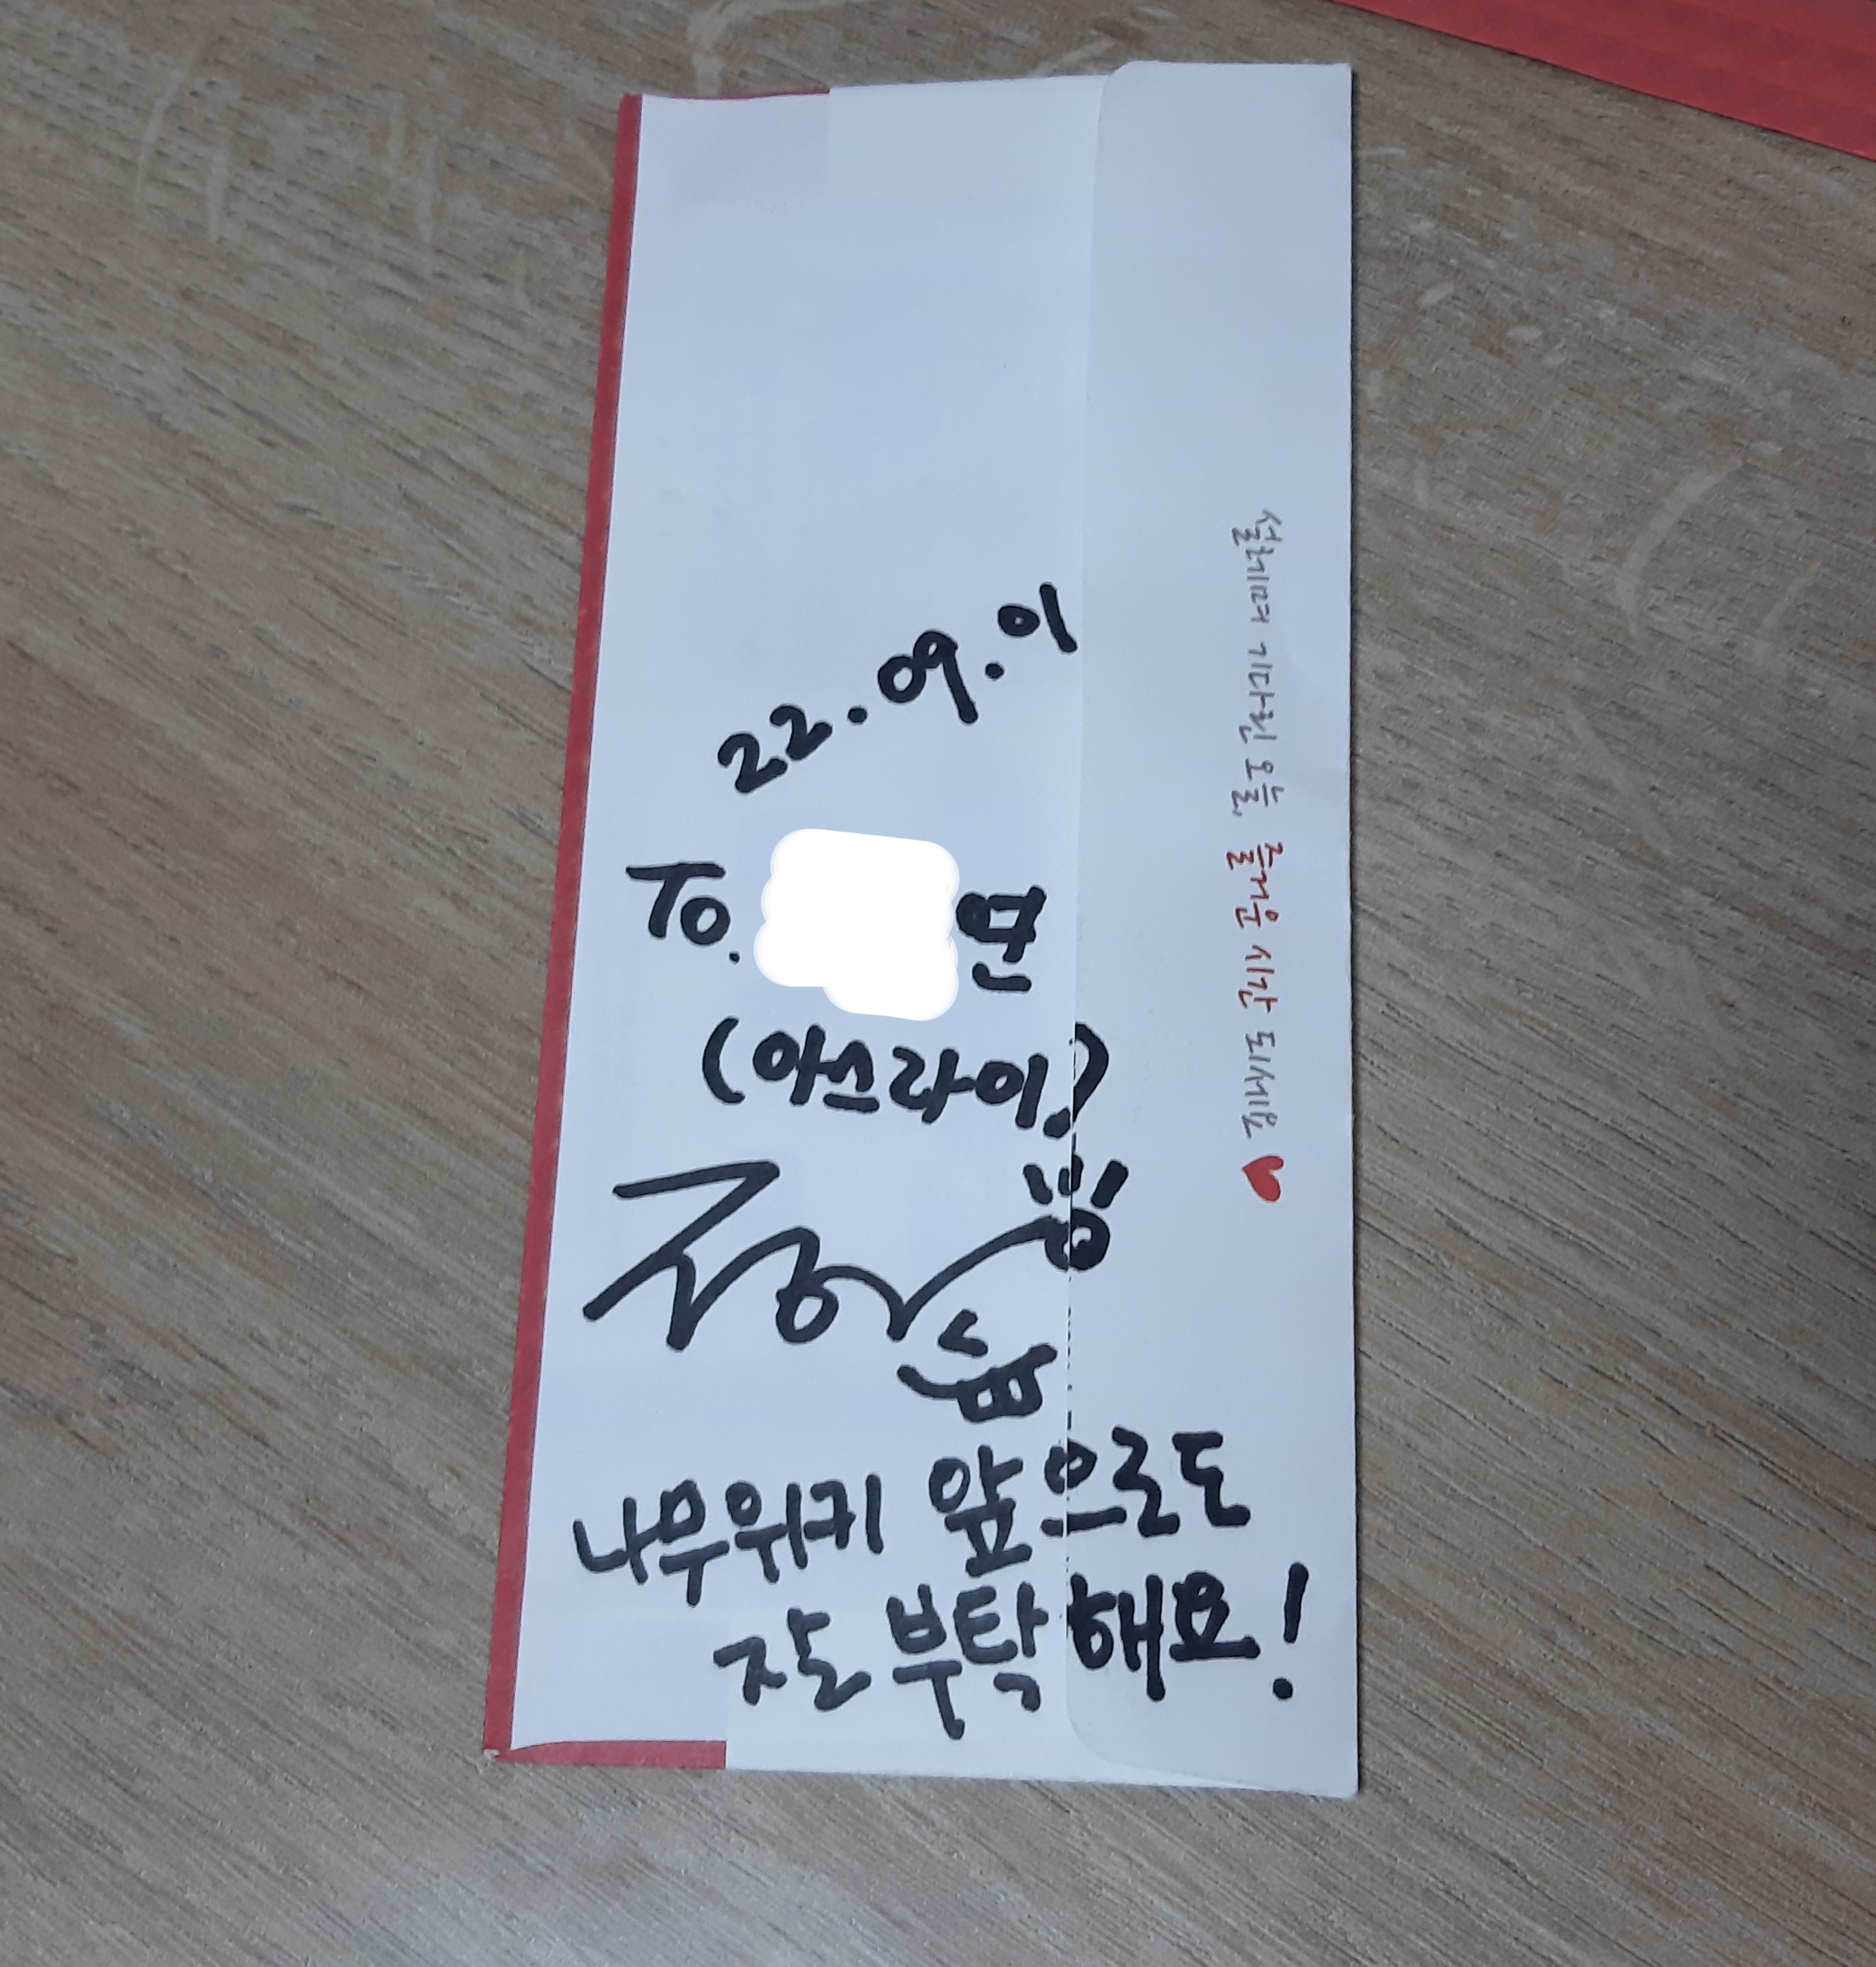 22.09.01
To.
(아스라이!)
나무위키 앞으로도
잘 부탁해요!
설레며 기다린 오늘, 즐거운 시간 되세요 ♥